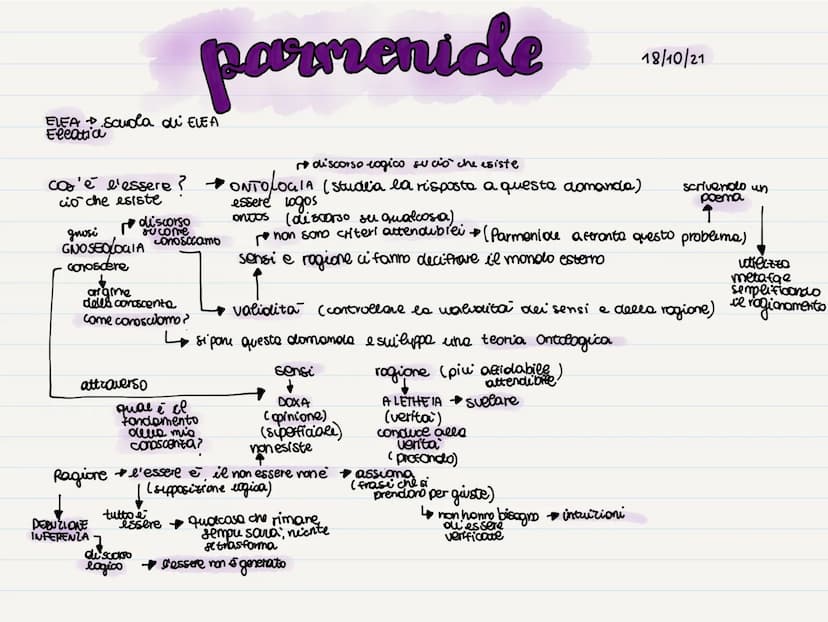 parmenide
18/10/21
ELEA → Scuola di ELEA
Eleatica
→ discorso logico su ciò che esiste
cos'è l'essere? → ONTOLOGIA (studia la risposta a questa domanda)
ciò che esiste
essere logos
ontos (discorso su qualcosa)
scrivendo un
poema
utilizza
metafore
semplificando
il ragionamento
gnosi → discorso
su come
conosciamo
GNOSEOLOGIA
conoscere
→ non sono criteri attendibili → (Parmenide affronta questo problema)
sensi e ragione ci fanno decifrare il mondo esterno
origine
della conoscenza
come conosciamo?
→ validità (controllare la validità dei sensi e della ragione)
→ si pone questa domanda e sviluppa una teoria ontologica
attraverso
sensi
DOXA
(opinione)
(superficiale)
non esiste
ragione (più affidabile
attendibile)
ALETHEIA → svelare
(verità)
conduce alla
verità
(profondo)
qual è il
fondamento
della mia
conoscenza?
Ragione → l'essere è, il non essere non è → assioma
(supposizione logica)
(frasi che si
prendono per giuste)
→ non hanno bisogno → intuizioni
di essere
verificate
DEDUZIONE
INFERENZA
tutto è
essere → qualcosa che rimane,
sempre sarà, niente
si trasforma
discorso
logico → l'essere non è generato